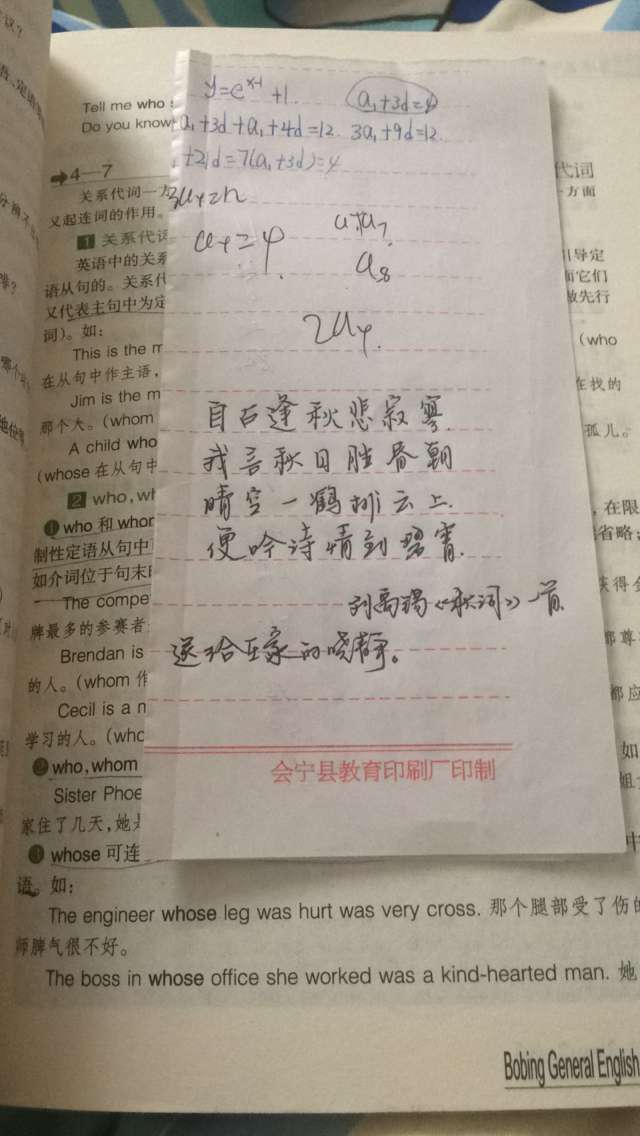 Tell me who
Do you know
4—7
关系代词一方
又起连词的作用。
1 关系代词
英语中的关系
语从句的。关系代
又代表主句中为定
词)。如:
This is the m
在从句中作主语,
Jim is the m
那个大。(whom
A child who
(whose 在从句中
2 who, wh
1 who 和 whom
制性定语从句中
如介词位于句末
The compe
牌最多的参赛者
Brendan is
的人。(whom 作
Cecil is a m
学习的人。(who
2 who, whom
Sister Phoe
家住了几天,她
3 whose 可连
语。如:
The engineer whose leg was hurt was very cross. 那个腿部受了伤的
师脾气很不好。
The boss in whose office she worked was a kind-hearted man. 她
Bobing General English
y=e^{x-1}+1
a₁+3d=4
a₁+3d+a₁+4d=12. 3a₁+9d=12.
+21d=7(a₁+3d)=4
a₈
2a₄.
自古逢秋悲寂寥.
我言秋日胜春朝
晴空一鹤排云上.
便吟诗情到碧霄.
刘禹锡《秋词》一首.
送给王家的晓静。
会宁县教育印刷厂印制
代词
方面
引导定
而它们
做先行
(who
在找的
孤儿。
,在限
省略;
获得金
都尊
都应
如
姐
中